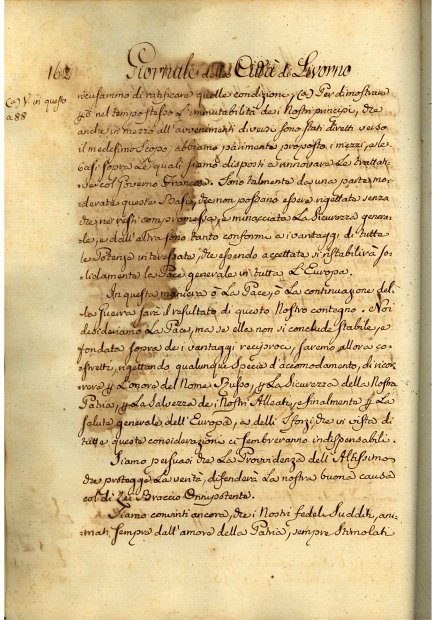 162 Giornale della Città di Livorno
(a) V. in questo
a 88
ricusammo di ratificare quelle condizione, (a) Per dimostrare
nel tempo stesso l'immutabilità de i Nostri principi, che
anche in mezzo all'avvenimenti diversi sono stati diretti verso
il medesimo scopo, abbiamo parimente proposto i mezzi, e le
basi sopra le quali siamo disposti a rinnovare le trattati-
ve col Governo Francese. Sono talmente da una parte mo-
derate queste Basi, che non possano essere rigettate senza
che ne resti compromessa, e minacciata la Sicurezza genera-
le, e dall'altra sono tanto conformi a i vantaggi di tutte
le Potenze interessate, che essendo accettate si ristabilirà so-
lidamente la Pace generale in tutta l'Europa.
In questa maniera ò la Pace, ò la continuazione del-
la Guerra sarà il resultato di questo Nostro contegno. Noi
desideriamo la Pace, ma se ella non si conclude stabile, e
fondata sopra de i vantaggi reciproci, saremo allora co-
stretti, rigettando qualunque specie d'accomodamento, di ricor-
rere l'Onore del Nome Russo, la Sicurezza della Nostra
Patria, la Salvezza de i Nostri Alleati, e finalmente la
salute generale dell'Europa, a delli sforzi, che in vista di
tutte queste considerazioni ci sembreranno indispensabili.
Siamo persuasi che la Provvidenza dell'Altissimo
che protegge la verità, difenderà la nostra buona causa
col di Lei Braccio Onnipotente.
Siamo convinti ancora, che i Nostri fedeli Sudditi, ani-
mati sempre dall'amore della Patria, sempre stimolati